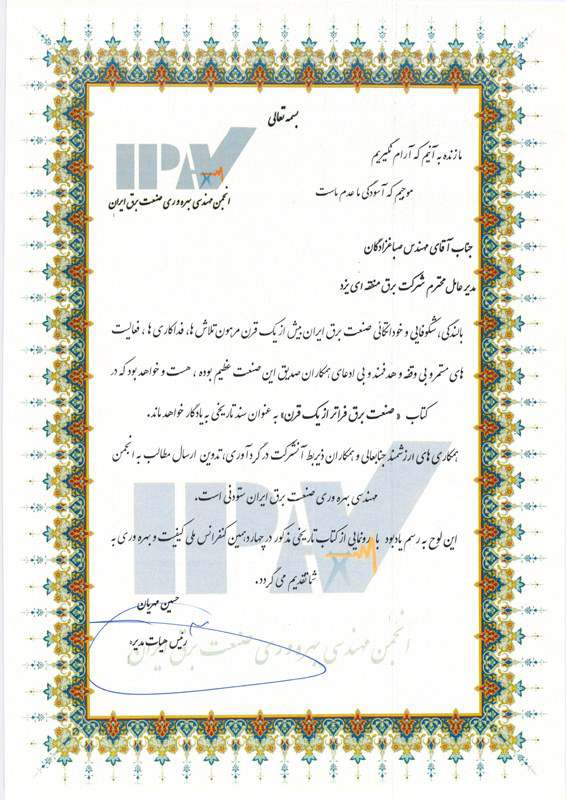 بسمه تعالی
IPA
انجمن مهندسی بهره وری صنعت برق ایران
ما زنده به آنیم که آرام نگیریم
موجیم که آسودگی ما عدم ماست
جناب آقای مهندس صباغزادگان
مدیر عامل محترم شرکت برق منطقه ای یزد
بالندگی، شکوفایی و خوداتکائی صنعت برق ایران بیش از یک قرن مرهون تلاش ها، فداکاری ها، فعالیت
های مستمر و بی وقفه و هدفمند و بی ادعای همکاران صدیق این صنعت عظیم بوده، هست و خواهد بود که در
کتاب «صنعت برق فراتر از یک قرن» به عنوان سند تاریخی به یادگار خواهد ماند.
همکاری های ارزشمند جنابعالی و همکاران ذیربط آنشرکت در گردآوری، تدوین ارسال مطالب به انجمن
مهندسی بهره وری صنعت برق ایران ستودنی است.
این لوح به رسم یادبود با رونمایی از کتاب تاریخی مذکور در چهاردهمین کنفرانس ملی کیفیت و بهره وری به
شما تقدیم می گردد.
حسین مهریان
رئیس هیات مدیره
IPA
انجمن مهندسی بهره وری صنعت برق ایران